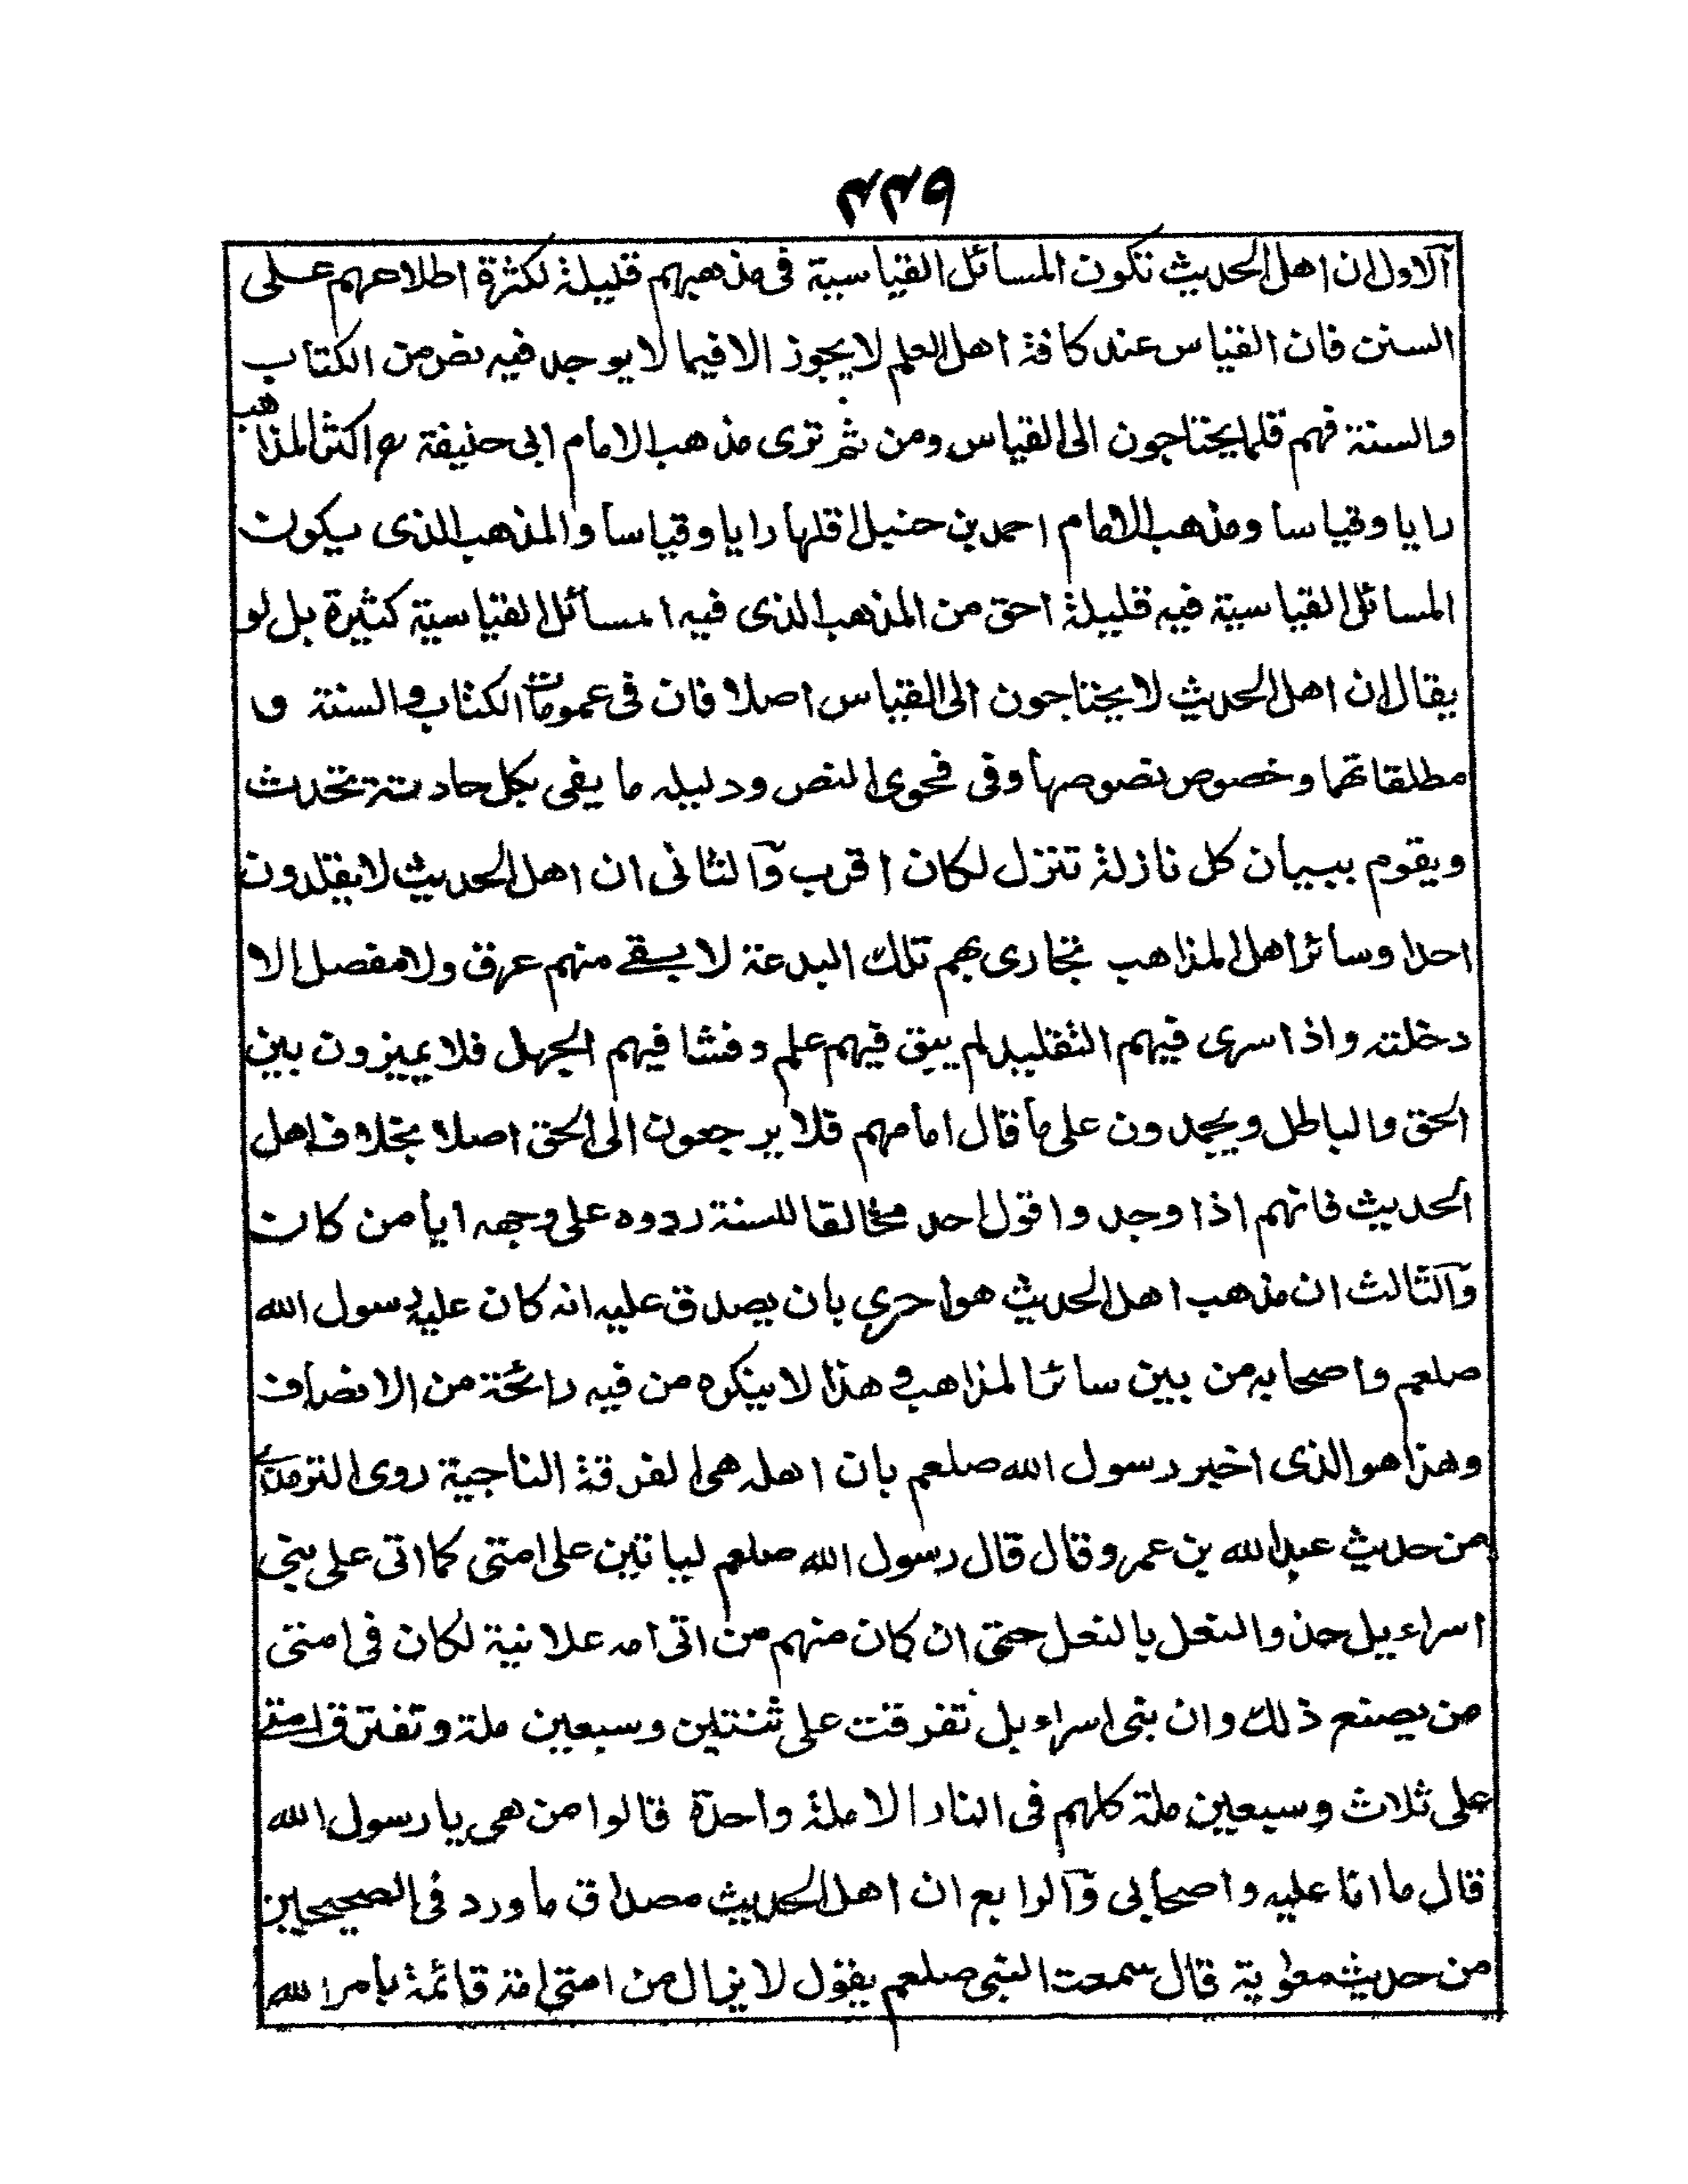 ۴۴۵
الاول ان اهل الحديث تكون المسائل القياسية فى مذهبهم قليلة لكثرة اطلاعهم على
السنن فان القياس عند كافة اهل العلم لا يجوز الا فيما لا يوجد فيه نص من الكتاب
والسنة فهم قلما يحتاجون الى القياس ومن ثم ترى مذهب الامام ابى حنيفة رح اكثر المذاهب
رايا وقياسا ومذهب الامام احمد بن حنبل اقلها رايا وقياسا والمذهب الذى يكون
المسائل القياسية فيه قليلة احق من المذهب الذى فيه المسائل القياسية كثيرة بل لو
يقال ان اهل الحديث لا يحتاجون الى القياس اصلا فان فى عمومات الكتاب والسنة و
مطلقاتهما وخصوص نصوصها وفى فحوى النص ودليله ما يفى بكل حادثة تحدث
ويقوم ببيان كل نازلة تنزل لكان اقرب وآلثانى ان اهل الحديث لا يقلدون
احدا وسائر اهل المذاهب تجارى بهم تلك البدعة لا يبقے منهم عرق ولا مفصل الا
دخلته واذا سرى فيهم التقليد لم يبق فيهم علم وفشا فيهم الجهل فلا يميزون بين
الحق والباطل ويجمدون على ما قال امامهم فلا يرجعون الى الحق اصلا بخلاف اهل
الحديث فانهم اذا وجدوا قول احد مخالفا للسنة ردوه على وجهه ايا من كان
وآلثالث ان مذهب اهل الحديث هو احرى بان يصدق عليه انه كان عليه رسول الله
صلعم واصحابه من بين سائر المذاهب وهذا لا ينكره من فيه رائحة من الانصاف
وهذا هو الذى اخبر رسول الله صلعم بان اهله هى الفرقة الناجية روى الترمذے
من حديث عبد الله بن عمرو قال قال رسول الله صلعم لياتين على امتى كما اتى على بنى
اسراءيل حذو النعل بالنعل حتى ان كان منهم من اتى امه علانية لكان فى امتى
من يصنع ذلك وان بنى اسراءيل تفرقت على ثنتين وسبعين ملة وتفترق امتے
على ثلاث وسبعين ملة كلهم فى النار الا ملة واحدة قالوا من هى يا رسول الله
قال ما انا عليه واصحابى وآلرابع ان اهل الحديث مصداق ما ورد فى الصحيحين
من حديث معوية قال سمعت النبى صلعم يقول لا يزال من امتى امة قائمة بامر الله